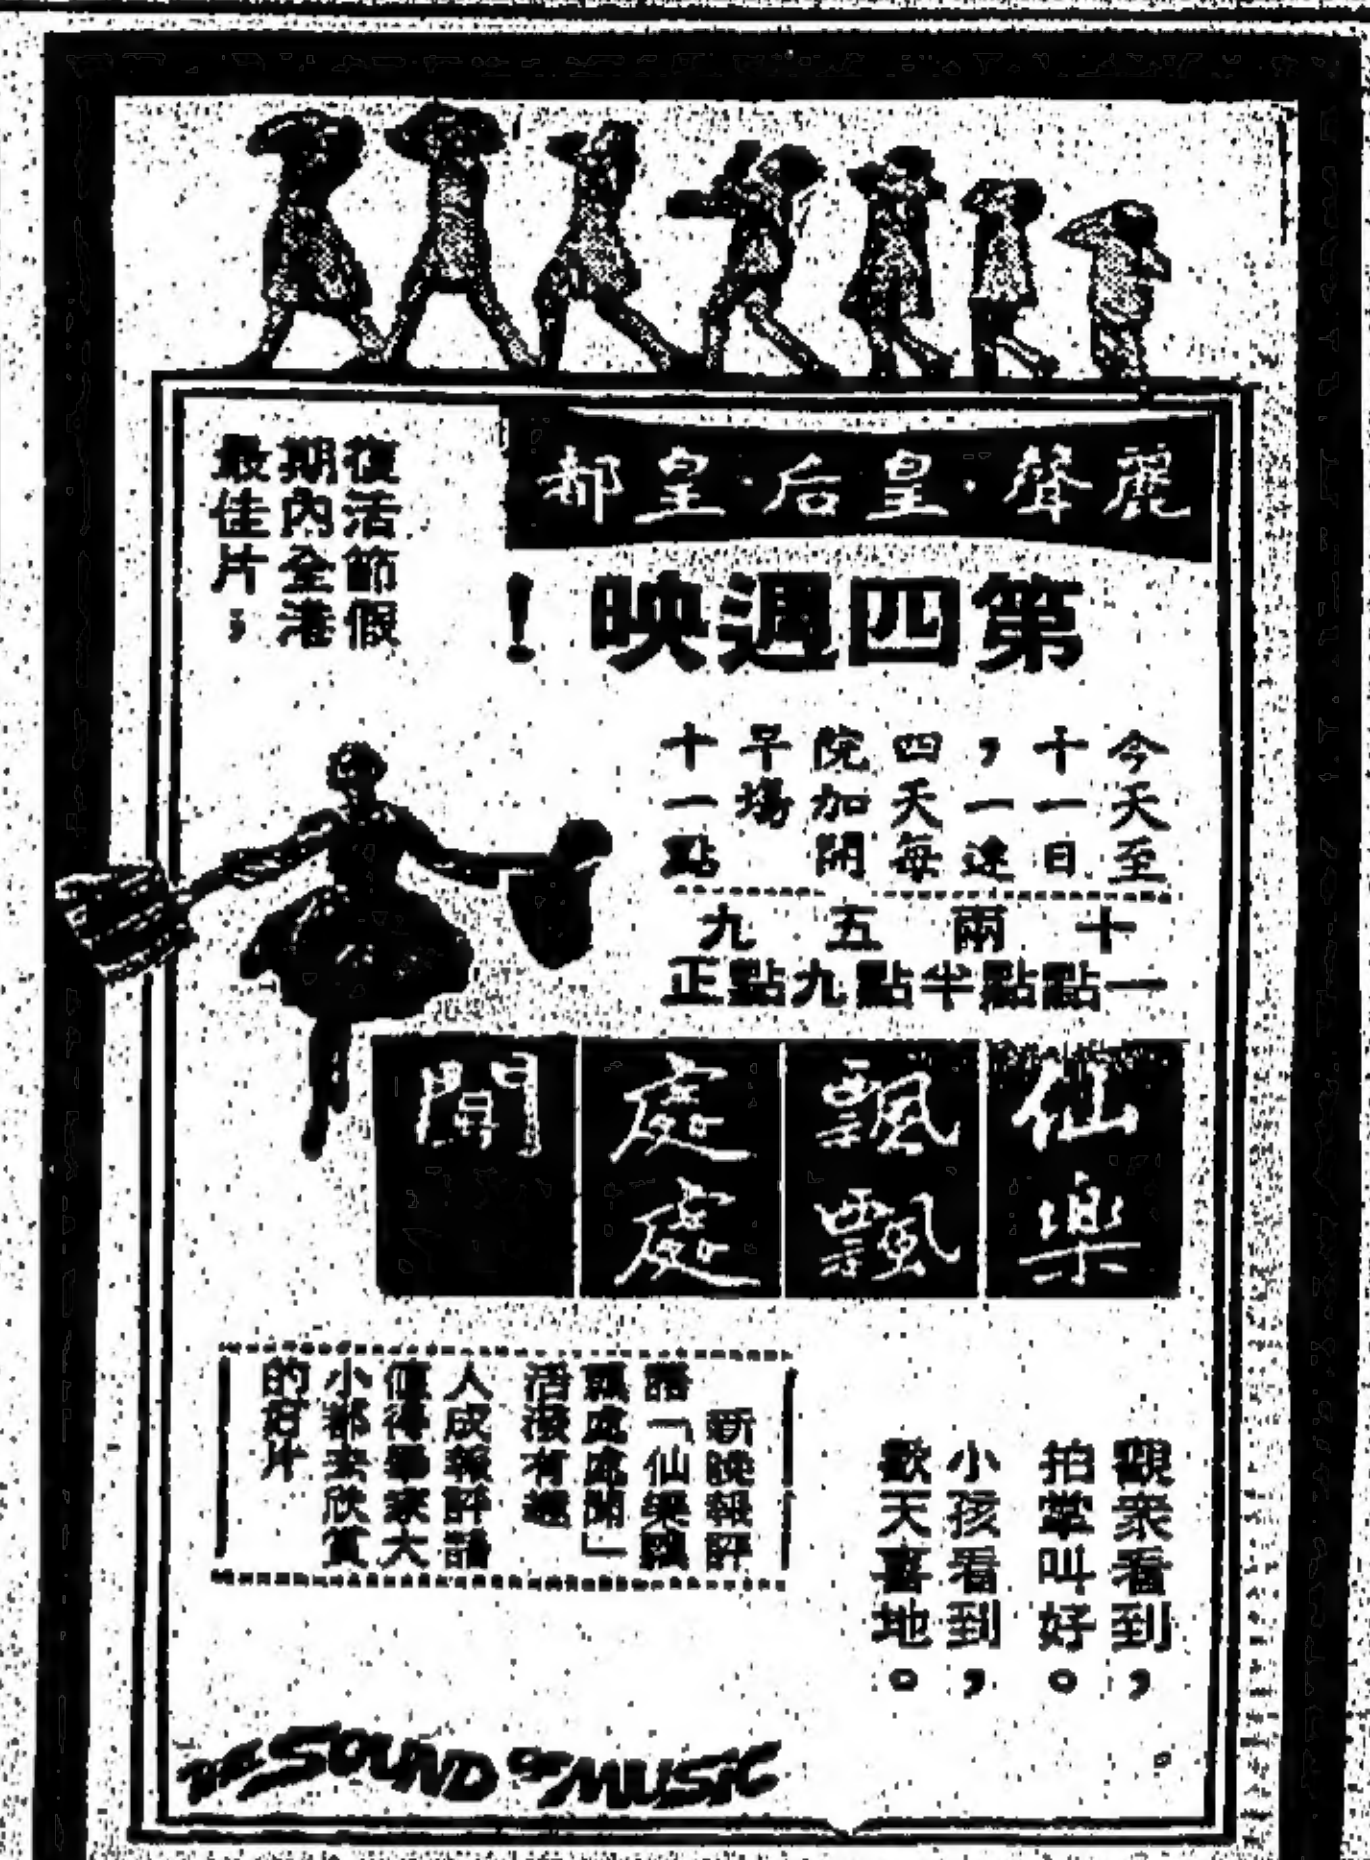 麗聲·皇后·皇都
第四週映！
復活節假
期內全港
最佳片；
今天至
十一日
，一連
四天每
院加開
早場
十一點
十一點
兩點半
五點九
九點正
仙樂
飄飄
處處
聞
觀衆看到，
拍掌叫好。
小孩看到，
歡天喜地。
新晚報評
語「仙樂飄
飄處處聞」
活潑有趣
人成報評語
值得舉家大
小都去欣賞
的好片
THE SOUND OF MUSIC